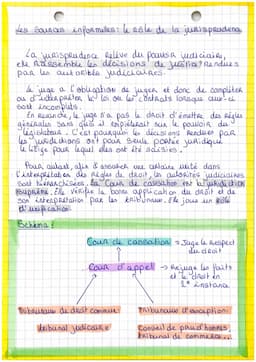 Les sources informelles : le rôle de la jurisprudence
La jurisprudence relève du pouvoir judiciaire,
elle rassemble les décisions de justice rendues
par les autorités judiciaires.
Le juge a l'obligation de juger et donc de compléter
ou d'interpréter la loi ou les contrats lorsque ceux-ci
sont incomplets.
En revanche, le juge n'a pas le droit d'émettre des règles
générales sans quoi il empiéterait sur le pouvoir du
législateur. C'est pourquoi les décisions rendues par
les juridictions ont pour seule portée juridique
le litige pour lequel elles ont été saisies.
Pour autant, afin d'assurer une certaine unité dans
l'interprétation des règles de droit, les autorités judiciaires
sont hiérarchisées. La Cour de cassation est la juridiction
suprême. Elle vérifie la bonne application du droit et de
son interprétation par les tribunaux. Elle joue un rôle
d'unification.
Schéma :
Cour de cassation → Juge le respect
du droit
Cour d'appel → Rejuge les faits
et le droit en
2e instance
Tribunaux de droit commun
tribunal judiciaire
Tribunaux d'exception
Conseil de prud'hommes,
tribunal de commerce...